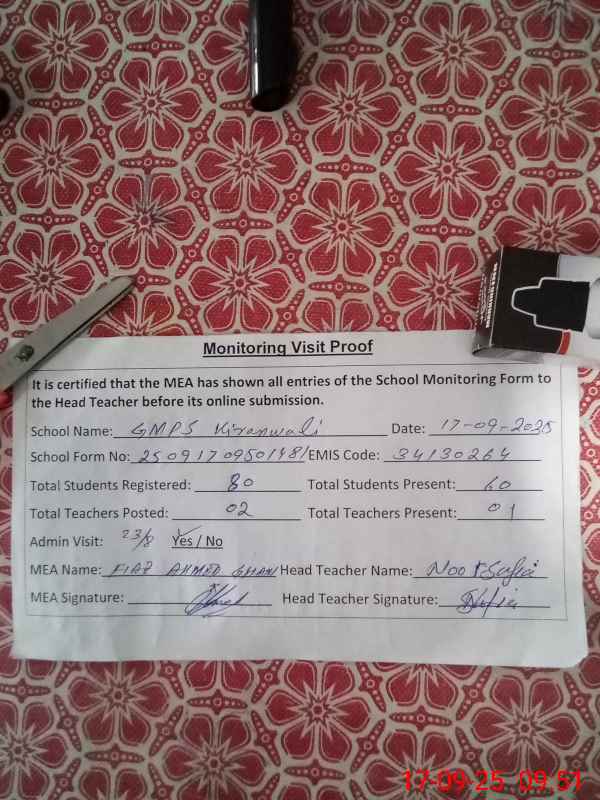 Monitoring Visit Proof
It is certified that the MEA has shown all entries of the School Monitoring Form to
the Head Teacher before its online submission.
School Name: GMPS Kiranwali Date: 17-09-2025
School Form No: EMIS Code: 34130264
Total Students Registered: 80 Total Students Present: 60
Total Teachers Posted: 02 Total Teachers Present: 01
Admin Visit: 23/8 Yes / No
MEA Name: FIAZ AHMED GHANI Head Teacher Name: Noor Safia
MEA Signature: Head Teacher Signature: Safia
17-09-25 09:51